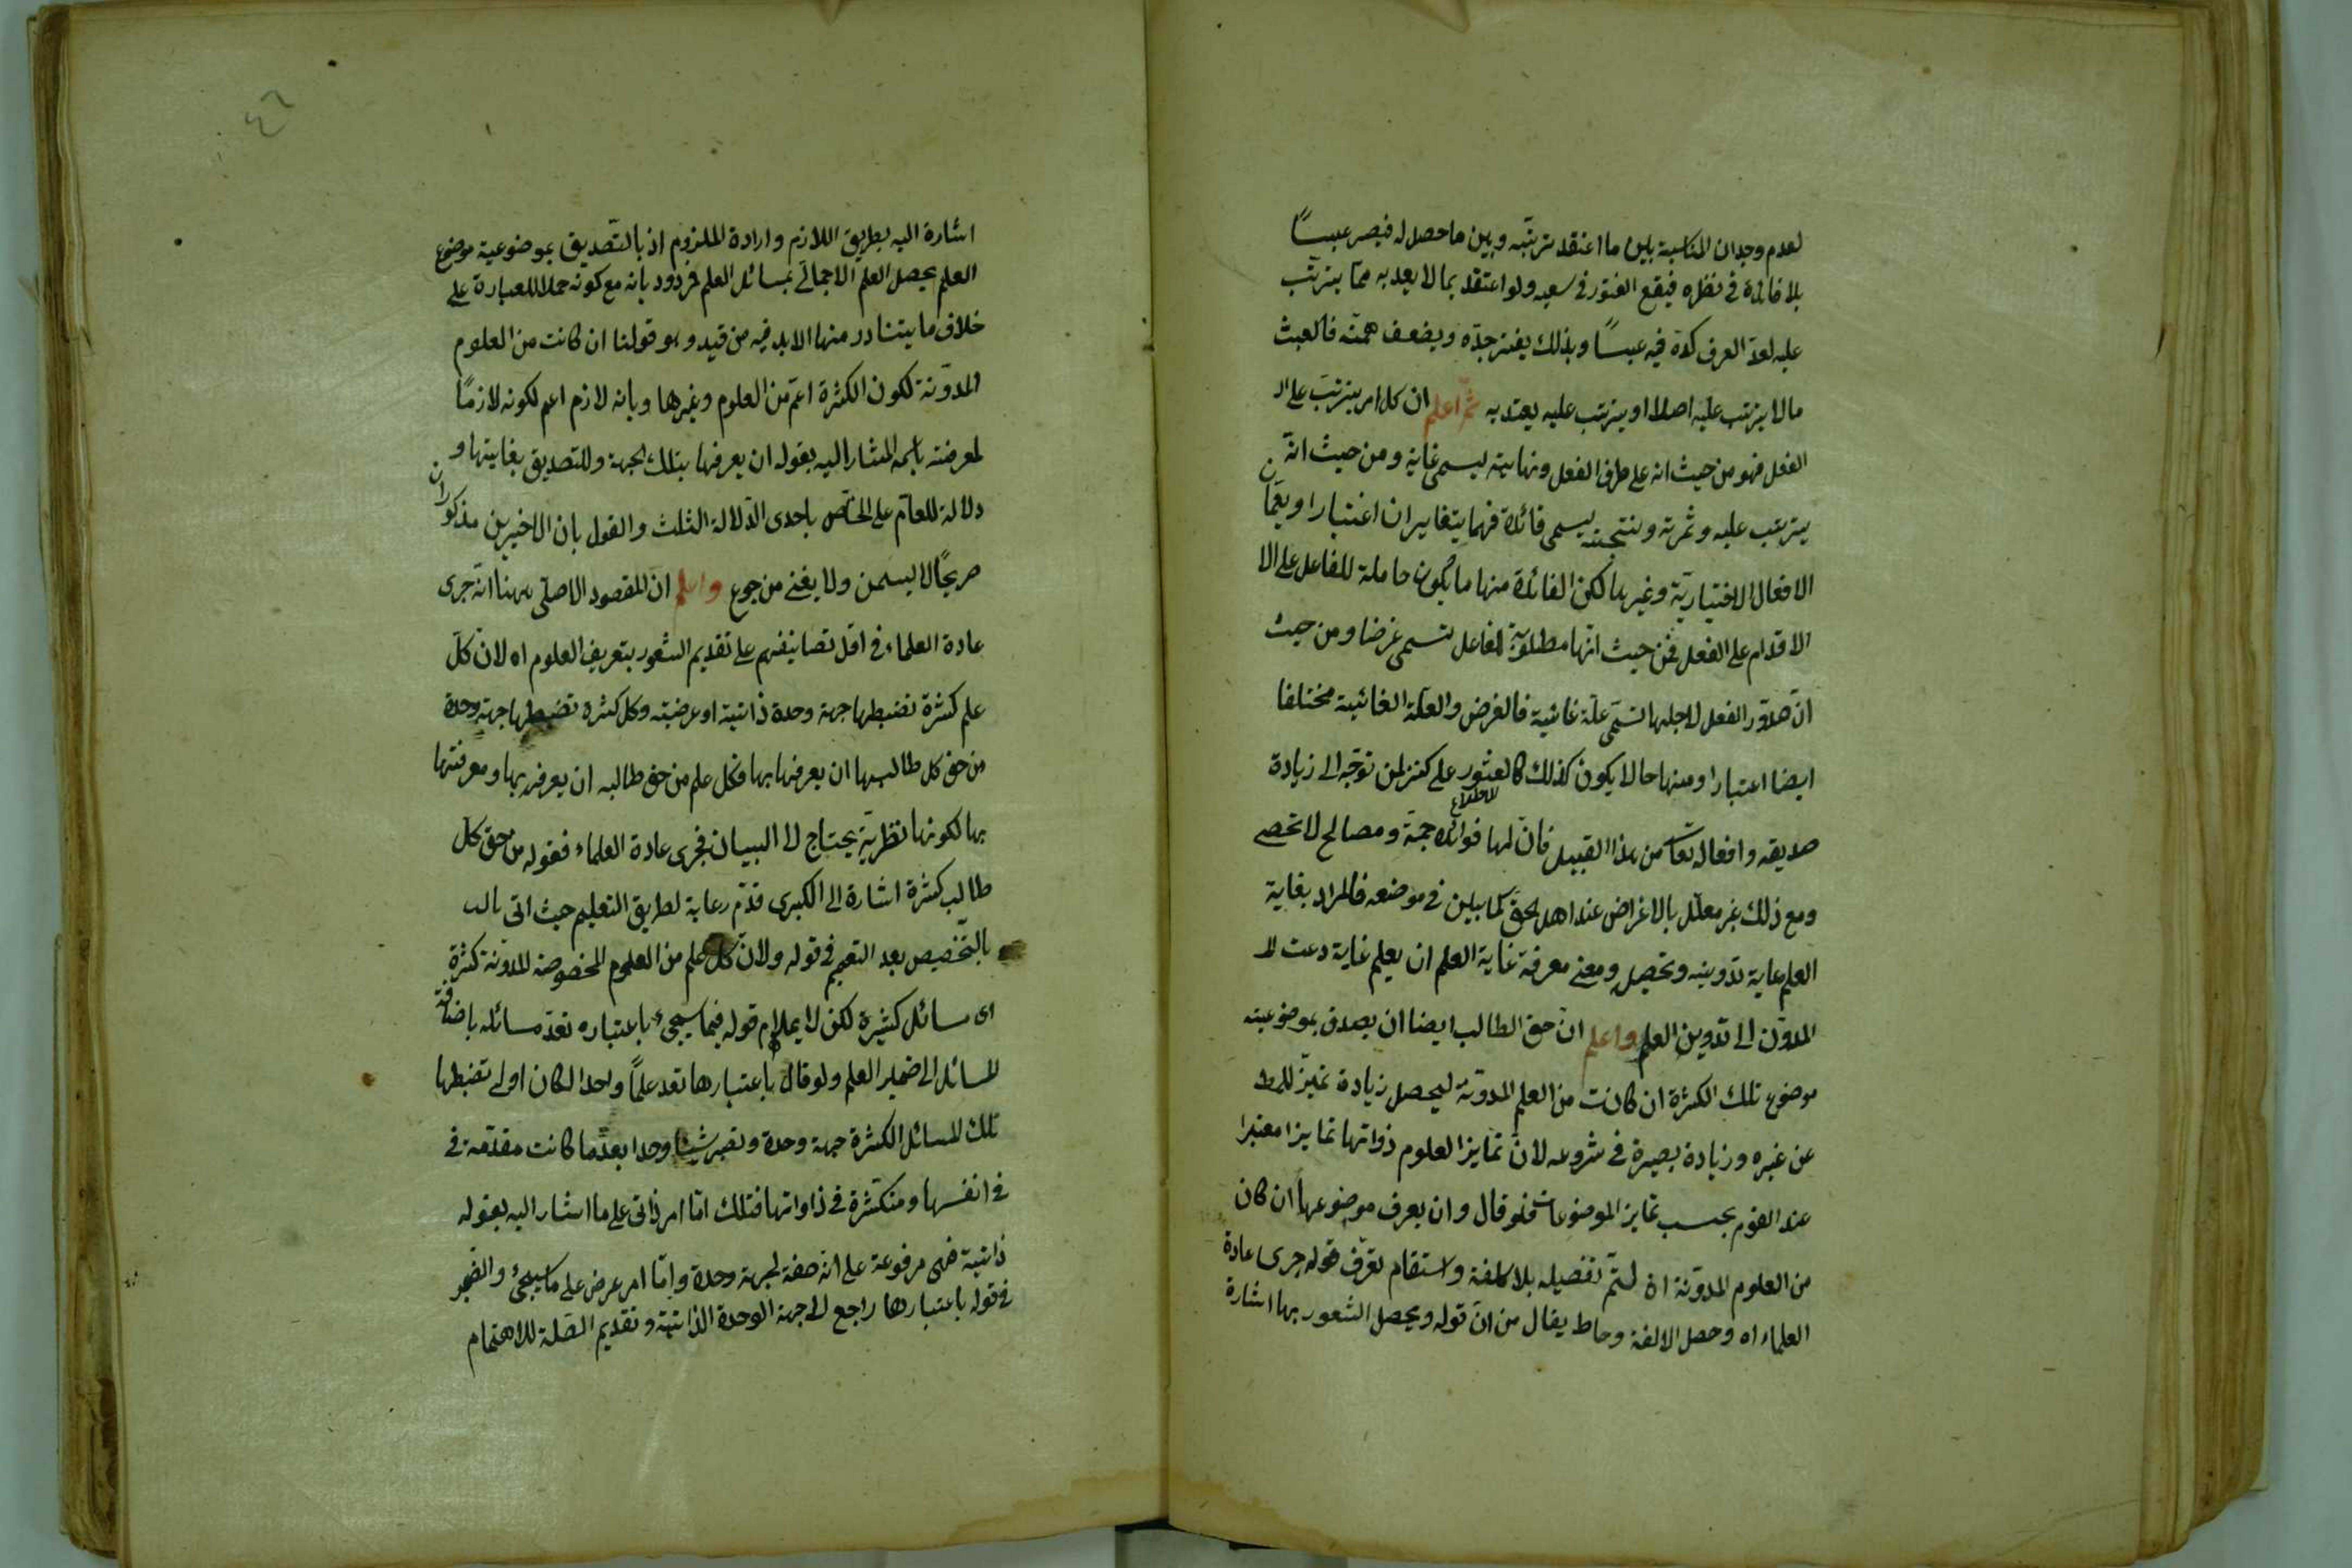 لعدم وجدان المناسبة بين ما اعتقد ترتبه وبين ما حصل له فيصير عبثًا
بلا فائدة في نظره فيقع الفتور في سعيه ولو اعتقد بما لا يعد به مما يترتب
عليه لعد العرف كده فيه عبثًا وبذلك يفتر جدّه ويضعف همته فالعبث
مالا يترتب عليه اصلا او يترتب عليه يعتد به ثمّ اعلم ان كل امر يترتب على ال
الفعل فهو من حيث انه على طرف الفعل ونهايته يسمى غاية ومن حيث انه
يترتب عليه وثمرته ونتيجته يسمى فائدة فهما يتغايران اعتبارا ويعمان
الافعال الاختياريّة وغيرها لكن الفائدة منها ما يكون حاملة للفاعل على الا
الاقدام على الفعل فمن حيث انّها مطلوبة للفاعل تسمى غرضا ومن حيث
انّ صدور الفعل لاجلها تسمّى علّة غائية فالغرض والعلّة الغائية مختلفا
ايضا اعتبارا ومنها حالا يكون كذلك كالعثور على كنز لمن توجّه الى زيادة
للاطلاع
صديقه وافعاله تعا من هذا القبيل فانّ لها فوائد جمّة ومصالح لا تحصى
ومع ذلك غير معلّل بالاغراض عند اهل الحق كما بين في موضعه فالمراد بغاية
العلم غاية تدوينه وتحصيله ومعنى معرفة غاية العلم ان يعلم غاية دعت الـ
المدوّن الى تدوين العلم واعلم انّ حق الطالب ايضا ان يصدق بموضوعيته
موضوع تلك الكثرة ان كانت من العلم المدونة ليحصل زيادة تميّز للمط
عن غيره وزيادة بصيرة في شروعه لانّ تمايز العلوم ذواتها تمايزا معتبرا
عند القوم بحسب تمايز الموضوعات فلو قال وان يعرف موضوعها ان كان
من العلوم المدوّنة اه لتمّ تفصيله بلا كلفة واستقام تعرّف قوله جرى عادة
العلماء اه وحصل الالفة وما يقال من انّ قوله ويحصل الشعور بها اشارة
٤٦
اشارة اليه بطريق اللازم وارادة الملزوم اذ بالتصديق بموضوعية موضوع
العلم يحصل العلم الاجمالي بمسائل العلم فمردود بانه مع كونه حملا للعبارة على
خلاف ما يتبادر منها الابد فيه من قيد وهو قولنا ان كانت من العلوم
المدوّنة لكون الكثرة اعمّ من العلوم وغيرها وبانه لازم اعم لكونه لازمًا
لمعرفته باسمه المشار اليه بقوله ان يعرفها بتلك الجهة وللتصديق بغايتها و
دلالة للعامّ على الخاص باحدى الدّلالة الثلث والقول بان الاخيرين مذكوران
صريحًا لا يسمن ولا يغني من جوع واعلم ان المقصود الاصلي ههنا انّه جرى
عادة العلماء في اوّل تصانيفهم على تقديم الشعور بتعريف العلوم اه لانّ كلّ
علم كثرة تضبطها جهة وحدة ذاتية او عرضية وكل كثرة تضبطها جهة وحدة
من حق كل طالبها ان يعرفها بها فكل علم من حق طالبه ان يعرفه بها ومعرفتها
بها لكونها نظريّة يحتاج الى البيان فجرى عادة العلماء فقوله من حق كل
طالب كثرة اشارة الى الكبرى قدّم رعاية لطريق التعليم حيث اتى بالـ
بالتخصيص بعد التعميم في قوله ولانّ كل علم من العلوم المخصوصة المدوّنة كثرة
اى مسائل كثيرة لكن لا يلايم قوله فيما سيجيء باعتباره تعدّ مسائله باضافة
المسائل الى ضمير العلم ولو قال باعتبارها تعد علمًا واحدا لكان اولى تضبطها
تلك المسائل الكثرة جهة وحدة وتصير شيئا واحدا بعدما كانت مقدّمة في
في انفسها ومتكثرة في ذاواتها فتلك امّا امر ذاتى على ما اشار اليه بقوله
ذاتية فهى مرفوعة على انّه صفة لجهة وحدة وامّا امر عرضى على ما سيجئ والضمير
في قوله باعتبارها راجع الى جهة الوحدة الذاتية وتقديم الصّلة للاهتمام